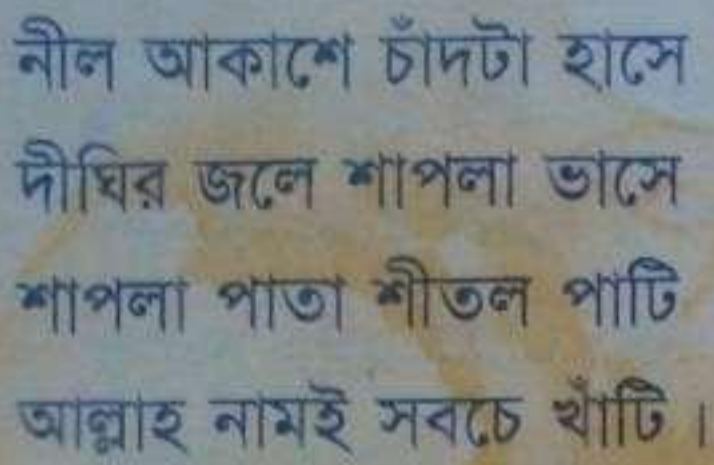 নীল আকাশে চাঁদটা হাসে
দীঘির জলে শাপলা ভাসে
শাপলা পাতা শীতল পাটি
আল্লাহ নামই সবচে খাঁটি।